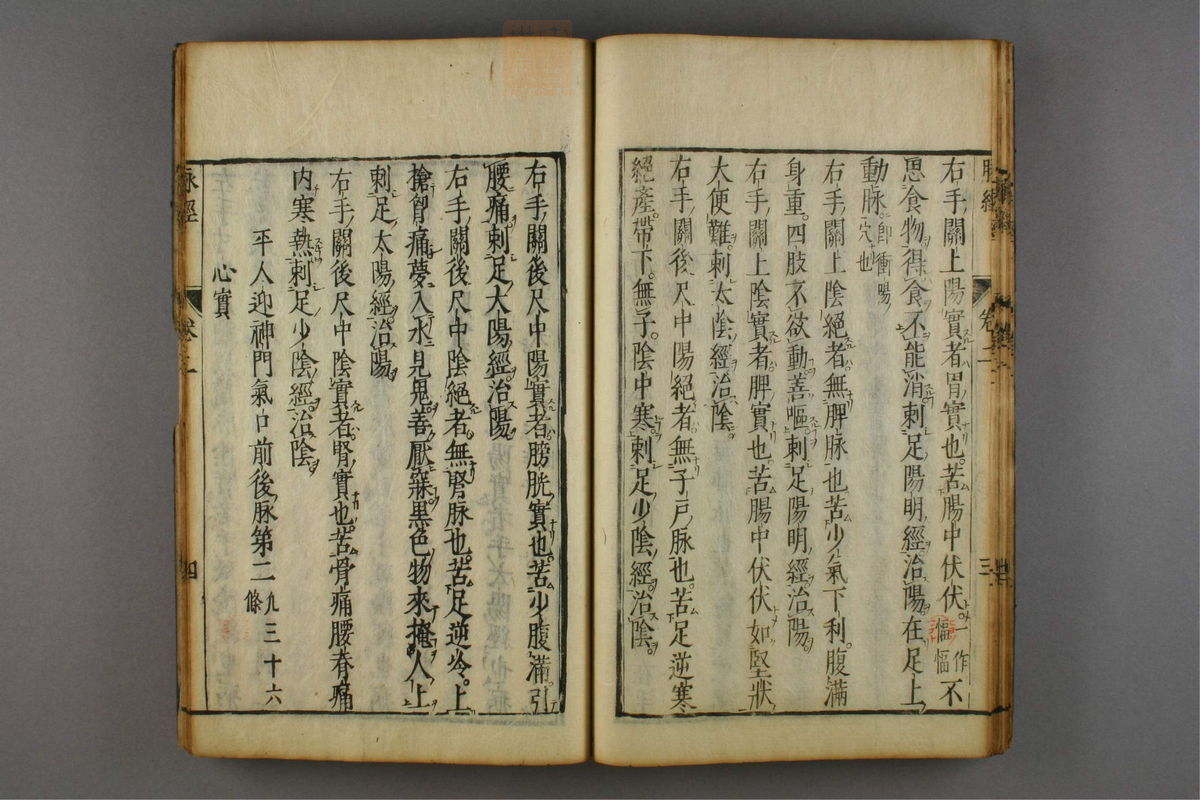 右手關上陽實者胃實也苦腸中伏伏一作愊愊不
思食物得食不能消刺足陽明經治陽在足上
動脉即衝陽穴也
右手關上陰絕者無脾脉也苦少氣下利腹滿
身重四肢不欲動善嘔刺足陽明經治陽
右手關上陰實者脾實也苦腸中伏伏如堅狀
大便難刺太陰經治陰
右手關後尺中陽絕者無子戶脉也苦足逆寒
絕產帶下無子陰中寒刺足少陰經治陰
脉經
卷二
三
右手關後尺中陽實者膀胱實也苦少腹滿引
腰痛刺足太陽經治陽
右手關後尺中陰絕者無腎脉也苦足逆冷上
搶胷痛夢入水見鬼善厭寐黑色物來掩人上
刺足太陽經治陽
右手關後尺中陰實者腎實也苦骨痛腰脊痛
内寒熱刺足少陰經治陰
平人迎神門氣口前後脉第二凡三十六條
心實
脉經
卷二
四